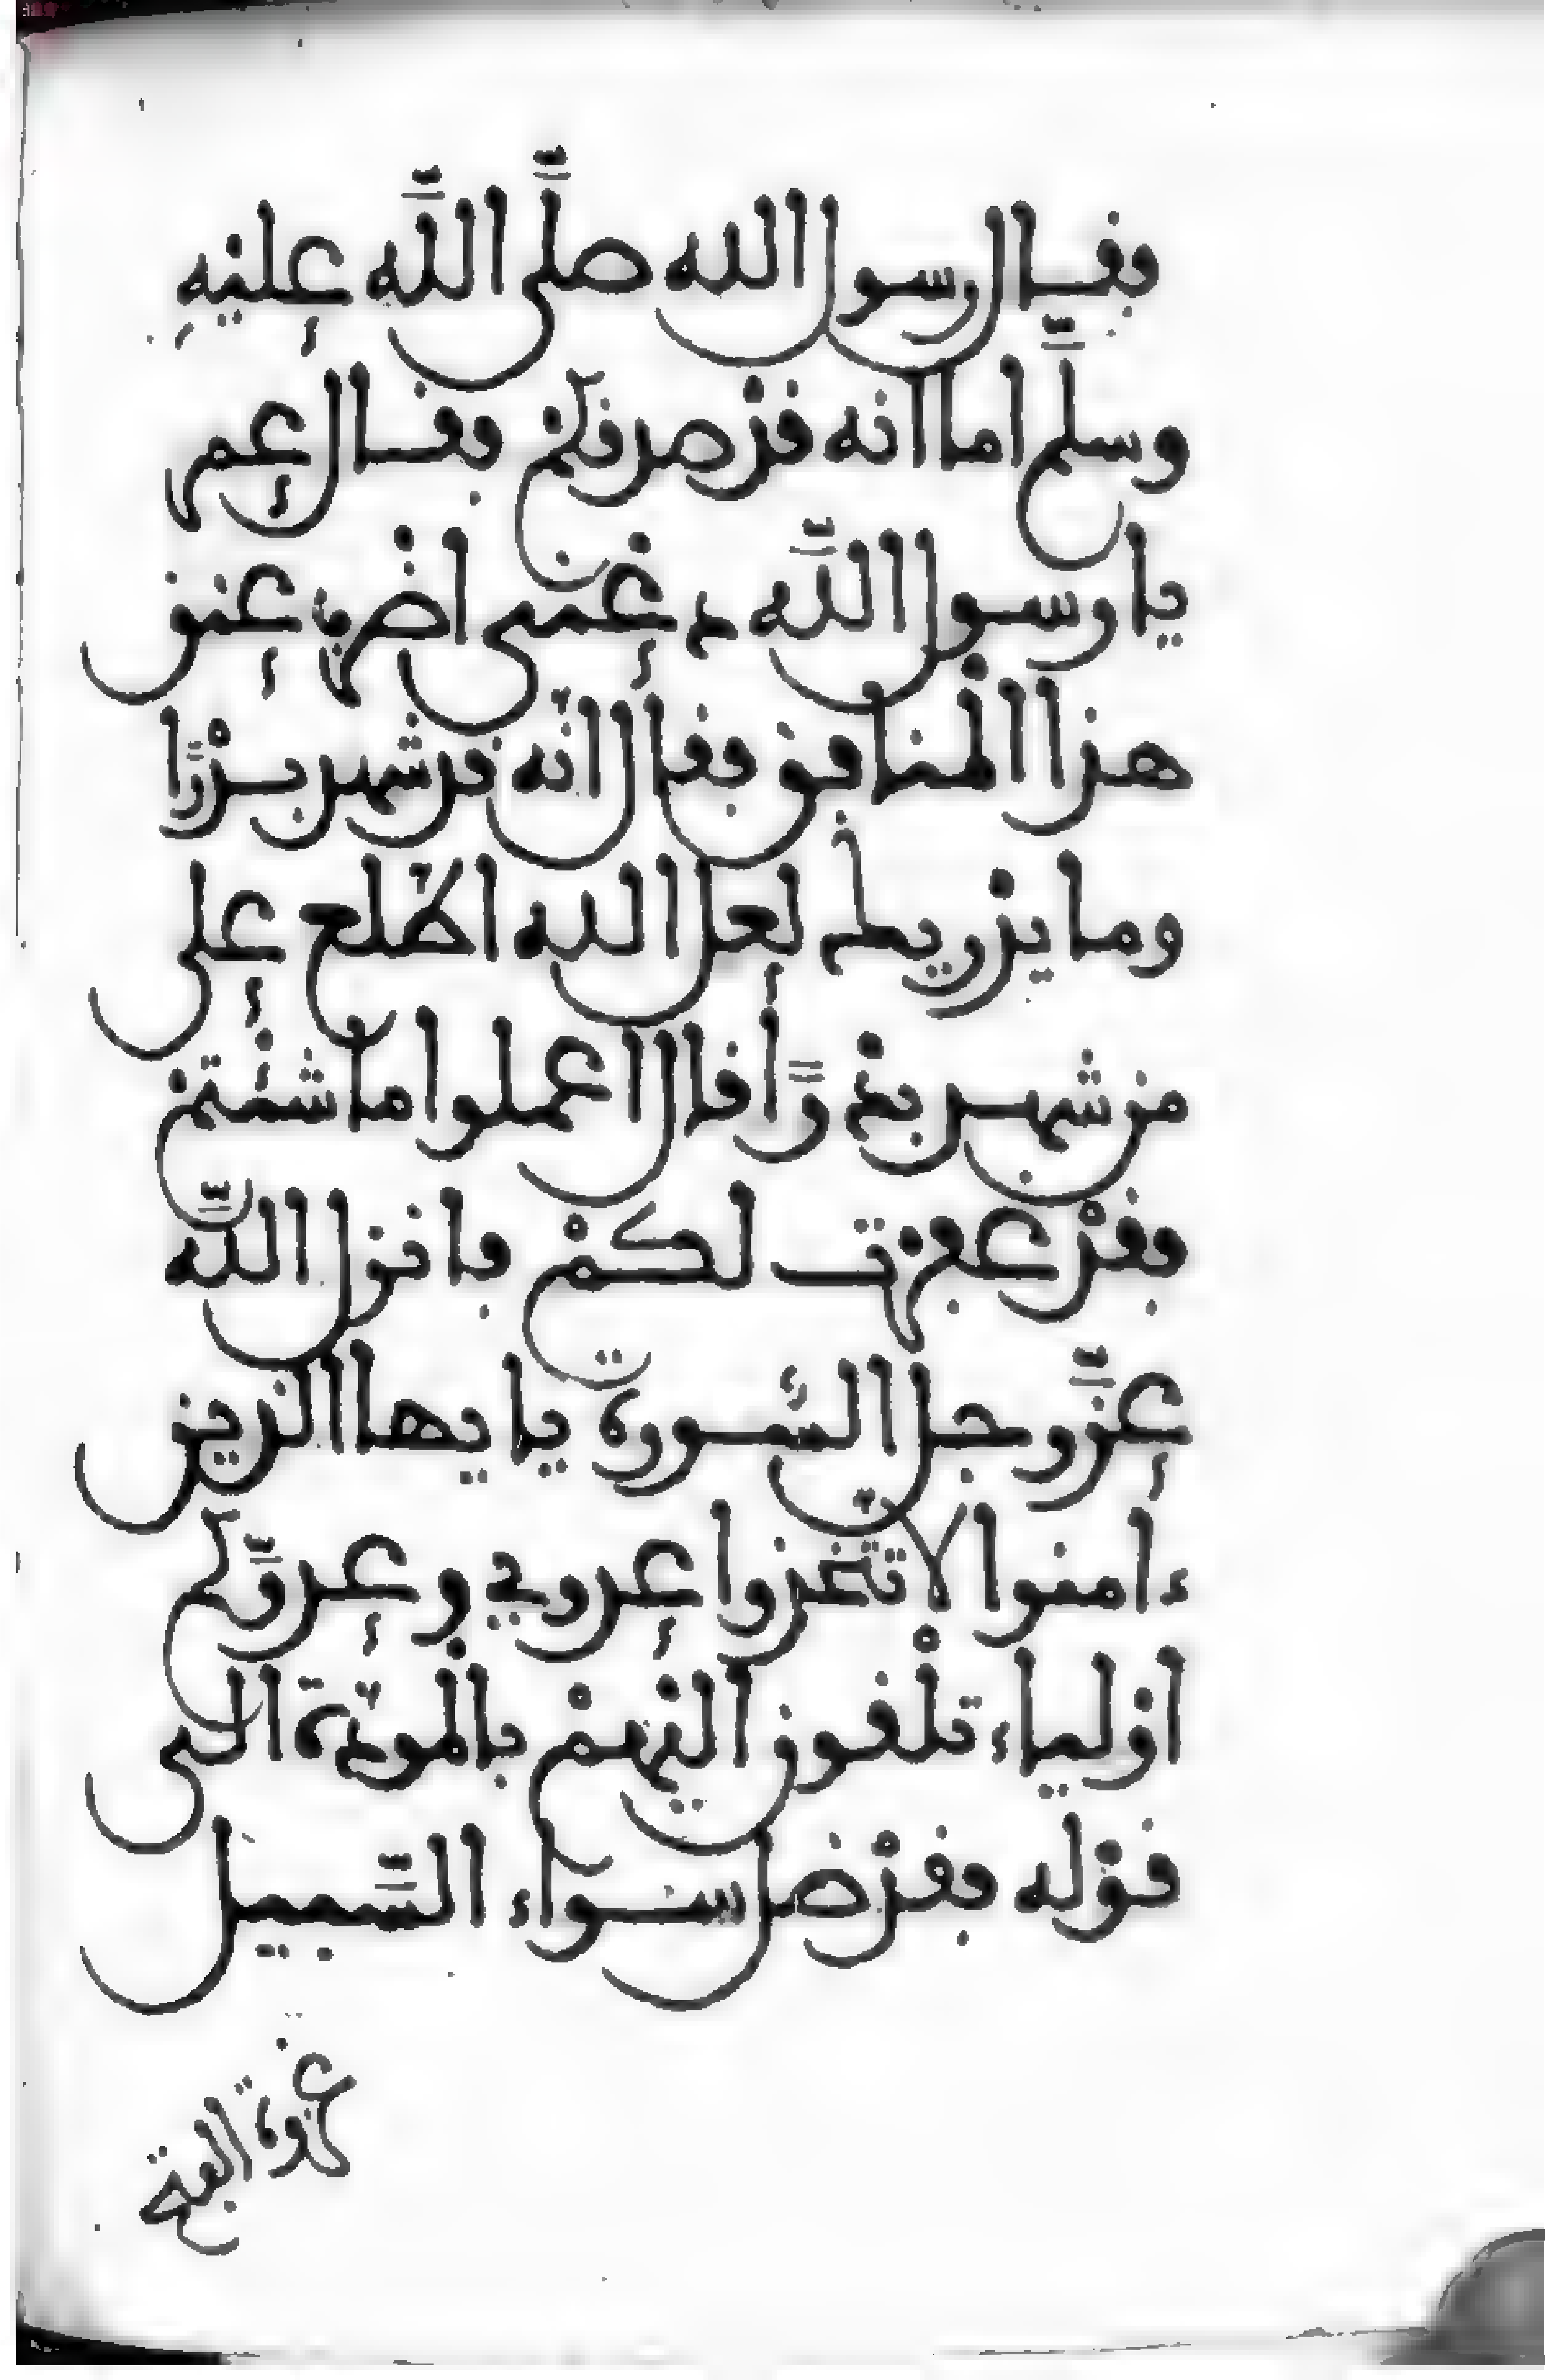 فقال رسول الله صلى الله عليه
وسلم اما انه قد صدقكم فقال عمر
يا رسول الله دعنى اضرب عنق
هذا المنافق فقال انه قد شهد بدرا
وما يدريك لعل الله اطلع على
من شهد بدرا قال اعملوا ما شئتم
فقد غفرت لكم فانزل الله
عز وجل السورة يايها الذين
ءامنوا لا تتخذوا عدوي وعدوكم
اولياء تلقون اليهم بالمودة الى
قوله فقد ضل سواء السبيل
غزوة الفتح